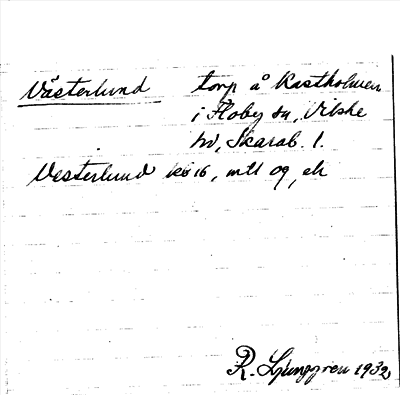 Västerlund torp å Kastholmen
i Floby sn, Vilske
hd, Skarab. l.
Westerlund kb 16, mtl og, ek
R. Ljunggren 1932